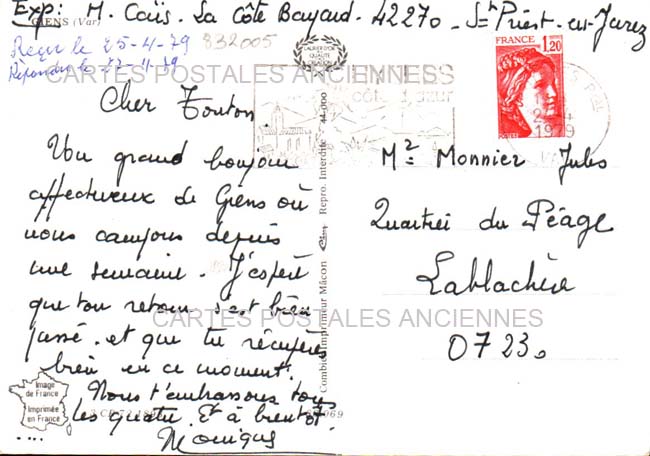 Exp: M. Caüs. La Côte Bayard. 42270 - St Priest-en-Jarez
GIENS (Var)
Reçu le 25-4-79
832005
Répondu le
CARTES POSTALES ANCIENNES
Cher Tonton.
Un grand bonjour
affectueux de Giens où
nous campons depuis
une semaine. J'espère
que ton retour s'est bien
passé. et que tu récupères
bien en ce moment.
Nous t'embrassons tous
les quatre. Et à bientôt.
....
Monique
CARTES POSTALES ANCIENNES
Image
de France
Imprimée
en France
Combier Imprimeur Mâcon
Repro. Interdite - 44.000
FRANCE
1,20
1979
Mr Monnier Jules
Quartier du Péage
Lablachère
07230